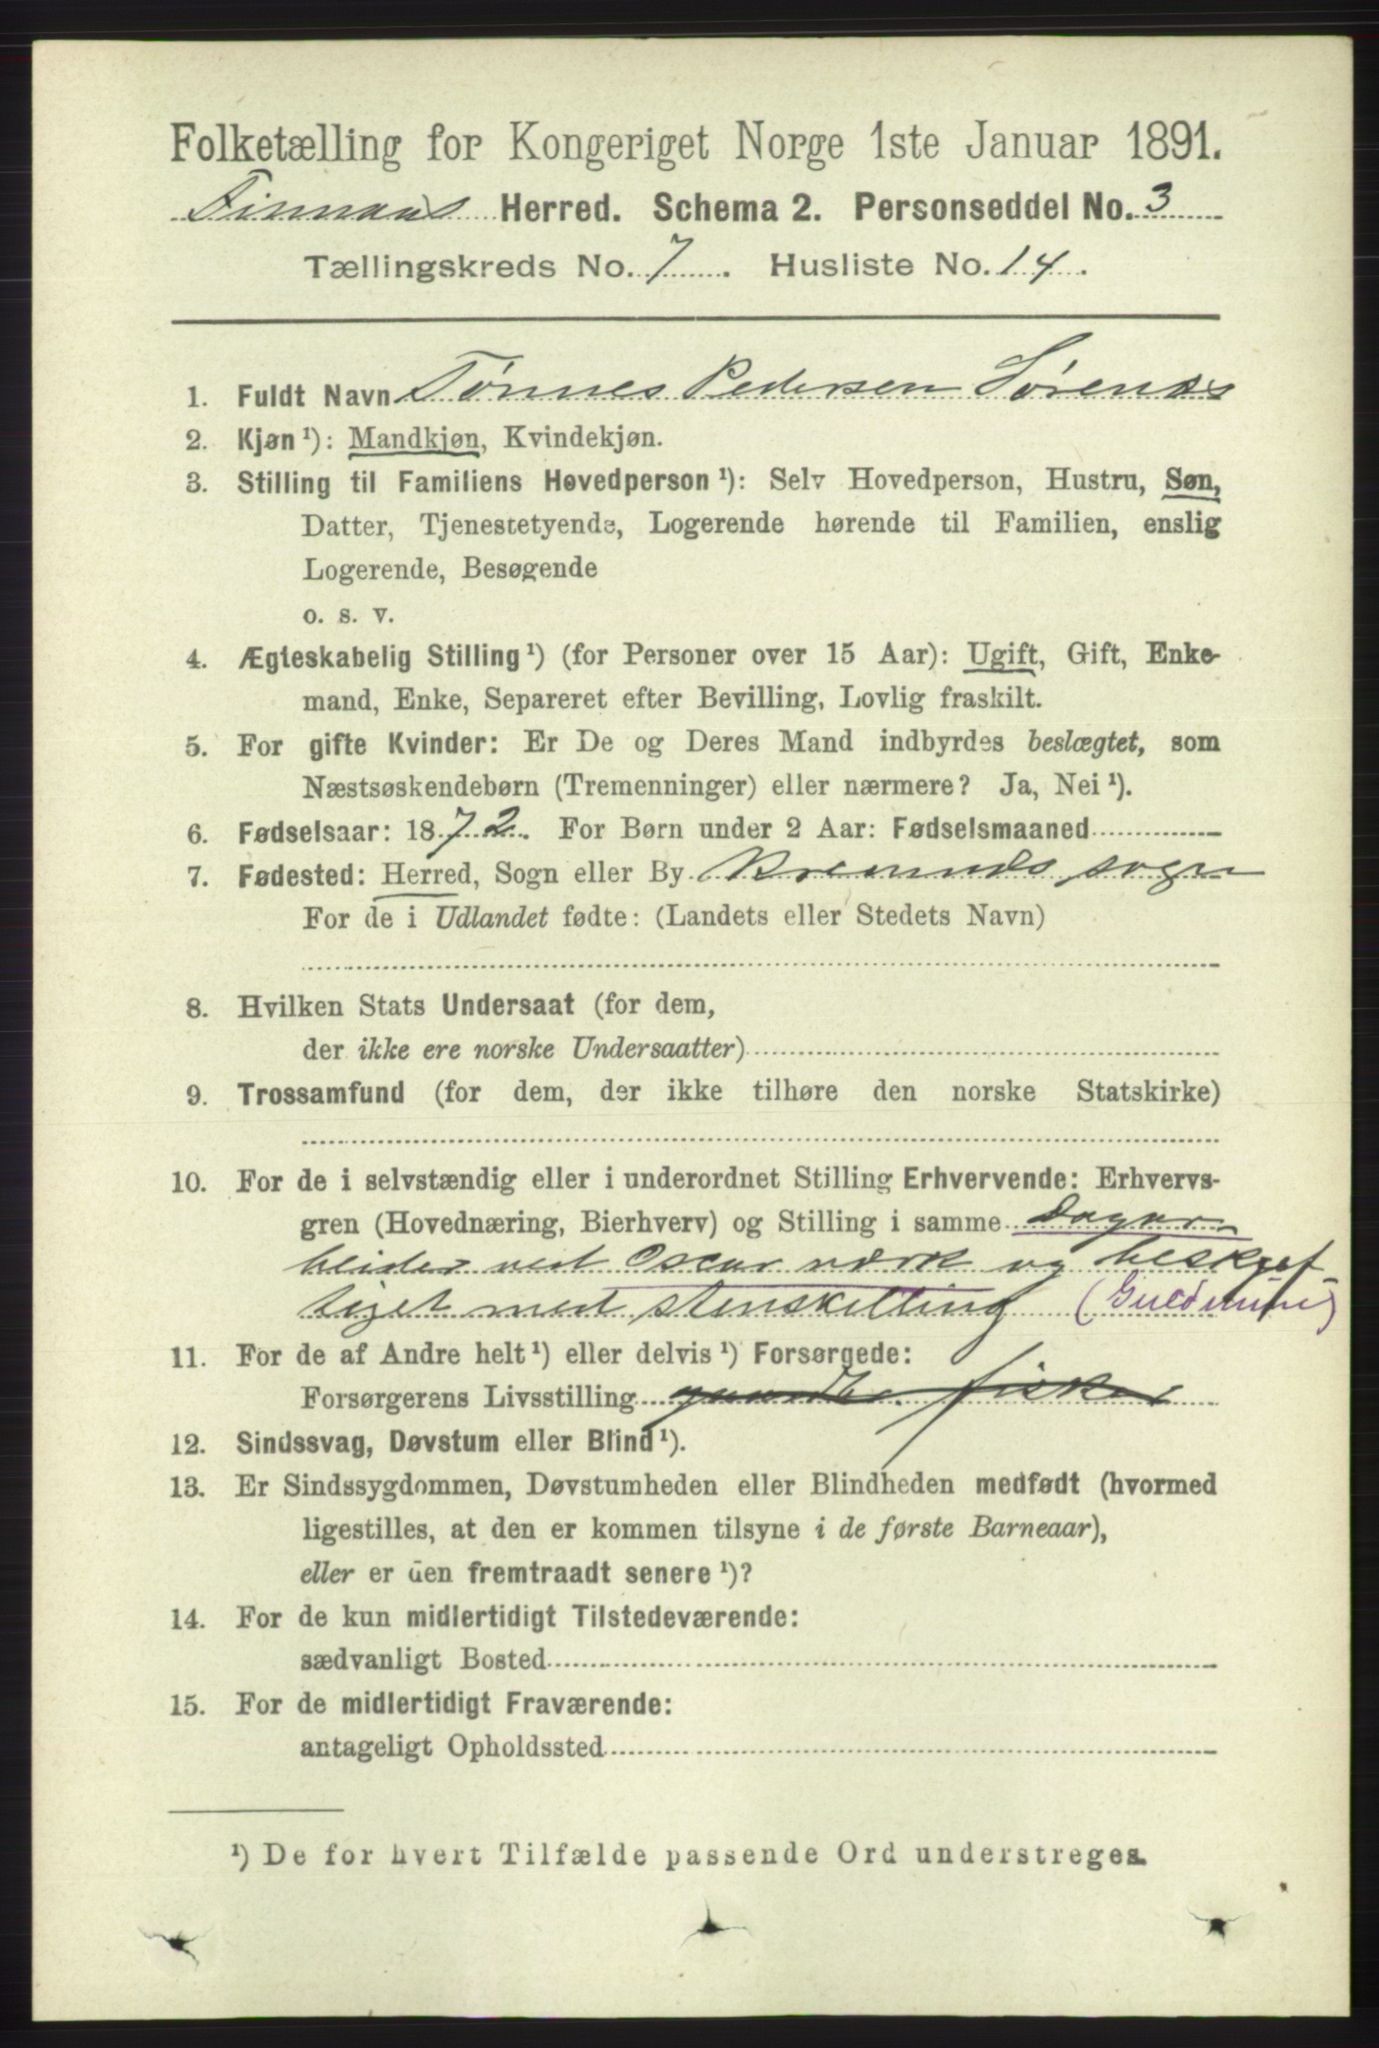 Folketælling for Kongeriget Norge 1ste Januar 1891.
Finnaas Herred. Schema 2. Personseddel No. 3
Tællingskreds No. 7. Husliste No. 14.
1. Fuldt Navn Tønnes Pedersen Sørenæs
2. Kjøn¹): Mandkjøn, Kvindekjøn.
3. Stilling til Familiens Hovedperson¹): Selv Hovedperson, Hustru, Søn,
Datter, Tjenestetyende, Logerende hørende til Familien, enslig
Logerende, Besøgende
o. s. v.
4. Ægteskabelig Stilling¹) (for Personer over 15 Aar): Ugift, Gift, Enke-
mand, Enke, Separeret efter Bevilling, Lovlig fraskilt.
5. For gifte Kvinder: Er De og Deres Mand indbyrdes beslægtet, som
Næstsøskendebørn (Tremenninger) eller nærmere? Ja, Nei¹).
6. Fødselsaar: 1872. For Børn under 2 Aar: Fødselsmaaned
7. Fødested: Herred, Sogn eller By Bremnæs sogn
For de i Udlandet fødte: (Landets eller Stedets Navn)
8. Hvilken Stats Undersaat (for dem,
der ikke ere norske Undersaatter)
9. Trossamfund (for dem, der ikke tilhøre den norske Statskirke)
10. For de i selvstændig eller i underordnet Stilling Erhvervende: Erhvervs-
gren (Hovednæring, Bierhverv) og Stilling i samme Dagar-
beider ved Oscar værk og beskjef-
tiget med stenskelting (Guldmine)
11. For de af Andre helt¹) eller delvis¹) Forsørgede:
Forsørgerens Livsstilling gaardbr. fisker
12. Sindssvag, Døvstum eller Blind¹).
13. Er Sindssygdommen, Døvstumheden eller Blindheden medfødt (hvormed
ligestilles, at den er kommen tilsyne i de første Barneaar),
eller er den fremtraadt senere¹)?
14. For de kun midlertidigt Tilstedeværende:
sædvanligt Bosted
15. For de midlertidigt Fraværende:
antageligt Opholdssted
¹) De for hvert Tilfælde passende Ord understreges.